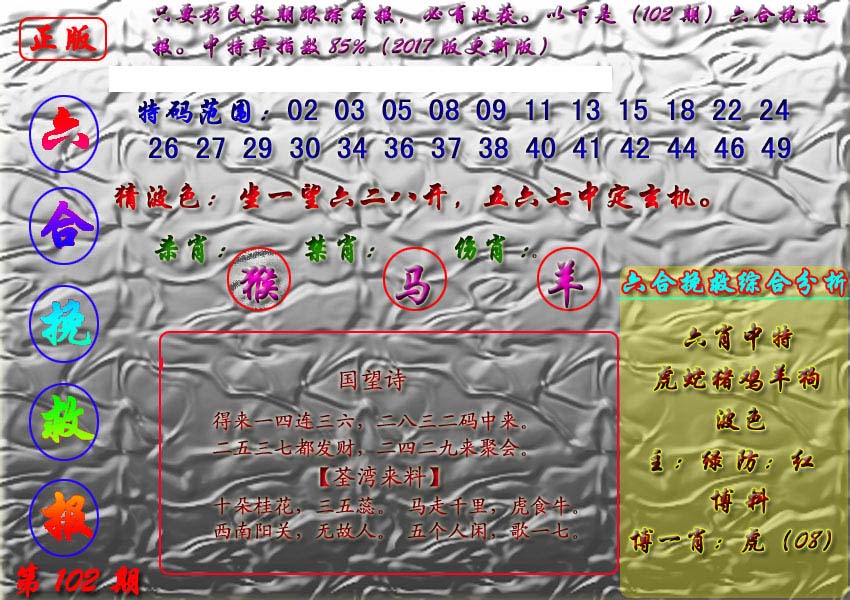 正版
只要彩民长期跟踪本报，必有收获。以下是（102期）六合挽救
报。中特率指数85%（2017版更新版）
六
合
挽
救
报
第102期
特码范围：02 03 05 08 09 11 13 15 18 22 24
26 27 29 30 34 36 37 38 40 41 42 44 46 49
猜波色：坐一望六二八开，五六七中定玄机。
杀肖：猴
禁肖：马
伤肖：羊
国望诗
得来一四连三六，二八三二码中来。
二五三七都发财，二四二九来聚会。
【荃湾来料】
十朵桂花，三五蕊。 马走千里，虎食牛。
西南阳关，无故人。 五个人闲，歌一七。
六合挽救综合分析
六肖中特
虎蛇猪鸡羊狗
波色
主：绿防：红
博料
博一肖：虎（08）